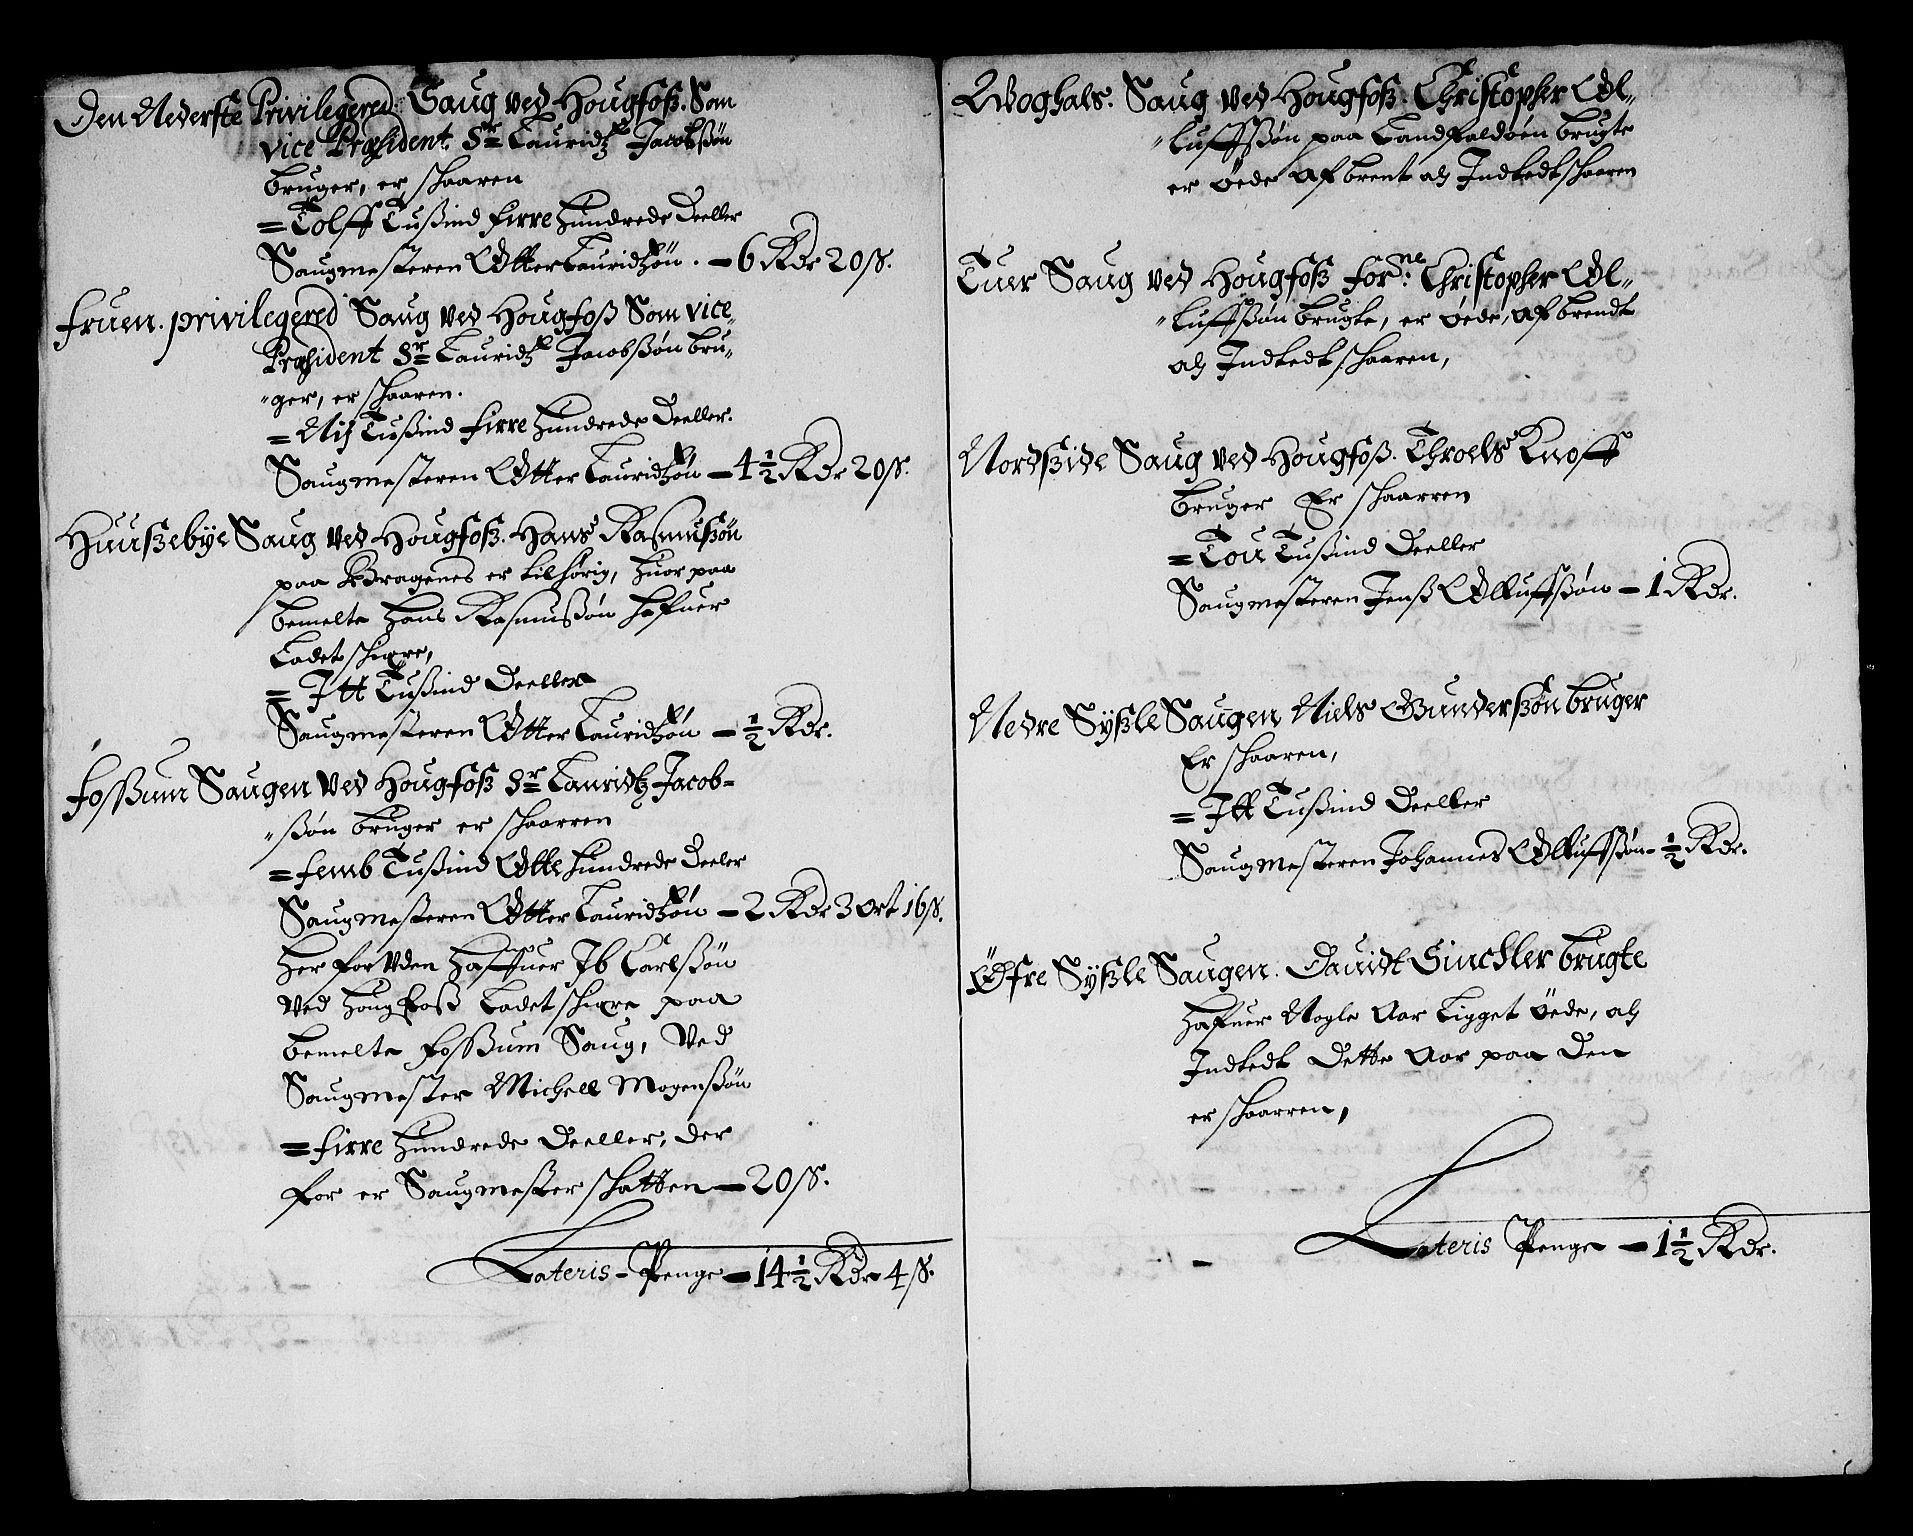 Den Nederste Privilegered Saug ved Hougfoß. Som
vice Præsident Sr Lauridtz Jacobßøn
bruger, er schaaren
= Tolff Tußind firre hundrede Deeller
Saugmesteren Otter Lauridtzøn. — 6 Rdr 20 ß.
Fruen. privilegered Saug ved Hougfoß Som vice,,
Præsident Sr Lauridtz Jacobßøn bru,,
,,ger, er schaaren.
= Nij Tußind firre hundrede Deeller.
Saugmesteren Otter Lauridtzøn — 4½ Rdr 20 ß.
Huußebye Saug ved Hougfoß. Hans Rasmußøn
paa Bragenes er tilhørig, huor paa
bemelte Hans Rasmußøn hafuer
Ladet schiære,
= Itt Tußind Deeller
Saugmesteren Otter Lauridtzøn — ½ Rdr.
Foßum Saugen ved Hougfoß Sr Lauridtz Jacob=
,,ßøn bruger er schaarren
= femb Tußind Otte hundrede Deeler
Saugmesteren Otter Lauridtzøn — 2 Rdr 3 ort 16 ß.
Her for uden haffuer Ib Carlßøn
ved Hougfoß Ladet schiære paa
bemelte Foßum Saug, Ved
Saugmester Michell Mogenßøn
= firre hundrede Deeller, der
for er Saugmester schatten — 20 ß.
Lateris — Penge — 14½ Rdr 4 ß.
Woghals. Saug ved Hougfoß. Christopher Ol,,
,,luffßøn paa Landfaldøen brugte
er øede af brent alz Indtedt schaaren
Tuer Saug ved Hougfoß forne: Christopher Ol,,
,,luffßøn brugte, er øede, af brendt
alz Indtedt schaaren,
Nordßide Saug ved Hougfoß. Throels Knoff
bruger Er schaarren
= Tou Tußind Deeller
Saugmesteren Jenß Olluffßøn — 1 Rdr.
Nedre Sÿßle Saugen Niels Gunderßøn bruger
Er schaaren,
= Itt Tußind Deeller
Saugmesteren Johannes Olluffßøn — ½ Rdr.
Øfre Sÿßle Saugen. Dauidt Sinckler brugte
hafuer Nogle Aar Ligget øede, alz
Indtedt dette Aar paa den
er schaarren,
Lateris Penge — 1½ Rdr.